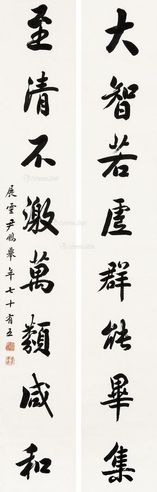 大智若虛群能畢集
至清不激萬類咸和
展雲尹鵬年七十有五